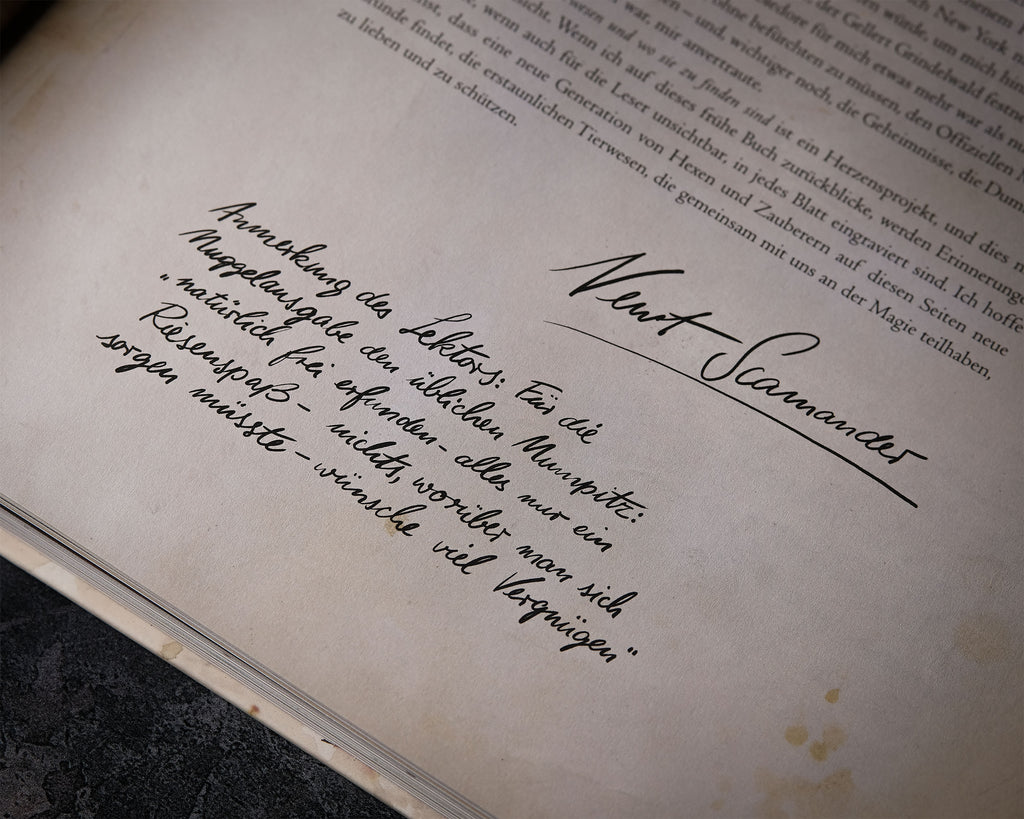 New York
würde, um mich
der Gellert Grindelwald
für mich etwas mehr war als
ohne befürchten zu müssen, den Offiziellen
und, wichtiger noch, die Geheimnisse, die
war, mir anvertraute.
wesen und wo sie zu finden sind ist ein Herzensprojekt, und dies
Wenn ich auf dieses frühe Buch zurückblicke, werden
wenn auch für die Leser unsichtbar, in jedes Blatt eingraviert sind. Ich hoffe
dass eine neue Generation von Hexen und Zauberern auf diesen Seiten neue
findet, die erstaunlichen Tierwesen, die gemeinsam mit uns an der Magie teilhaben,
zu lieben und zu schützen.
Newt Scamander
Anmerkung des Lektors: Für die
Muggelausgabe den üblichen Mumpitz:
"natürlich frei erfunden – alles nur ein
Riesenspaß – nichts, worüber man sich
sorgen müsste – wünsche viel Vergnügen"